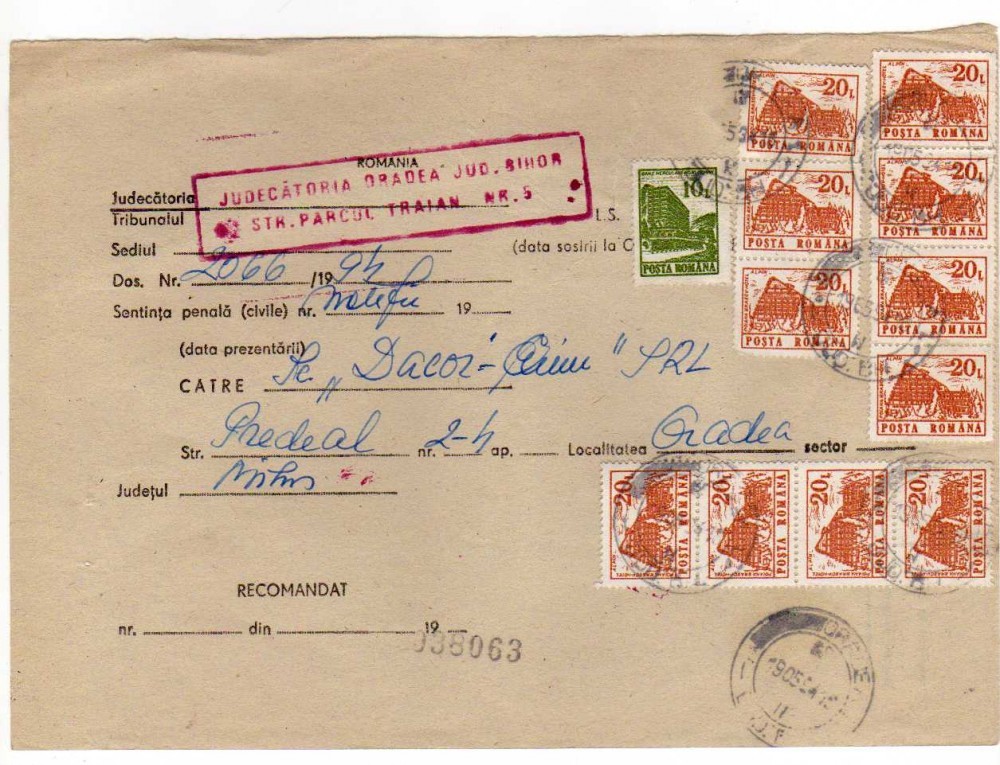 ROMANIA
JUDECĂTORIA ORADEA JUD. BIHOR
STR. PARCUL TRAIAN NR. 5
Judecătoria
Tribunalul
L.S.
Sediul
(data sosirii la
Dos. Nr. 2066 /19 94
Sentința penală (civile) nr. 19
(data prezentării)
CATRE Sc. „Dacor- ” SRL
Str. Predeal nr. 2-4 ap. Localitatea Oradea sector
Județul Bihor
RECOMANDAT
nr. din 19
038063
10L
POSTA ROMANA
20L
POSTA ROMANA
20L
POSTA ROMANA
20L
POSTA ROMANA
20L
POSTA ROMANA
20L
POSTA ROMANA
20L
POSTA ROMANA
20L
POSTA ROMANA
20L
POSTA ROMANA
20L
POSTA ROMANA
20L
POSTA ROMANA
20L
POSTA ROMANA